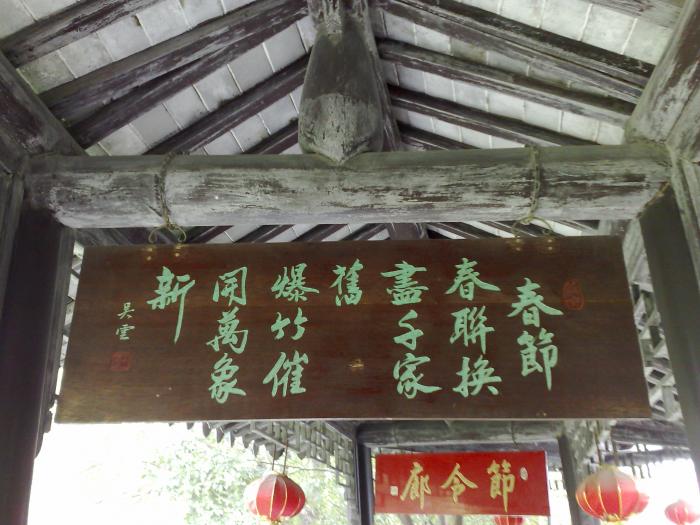 春節
春聯換
盡千家
舊
爆竹催
開萬象
新
吴雲
節令廊